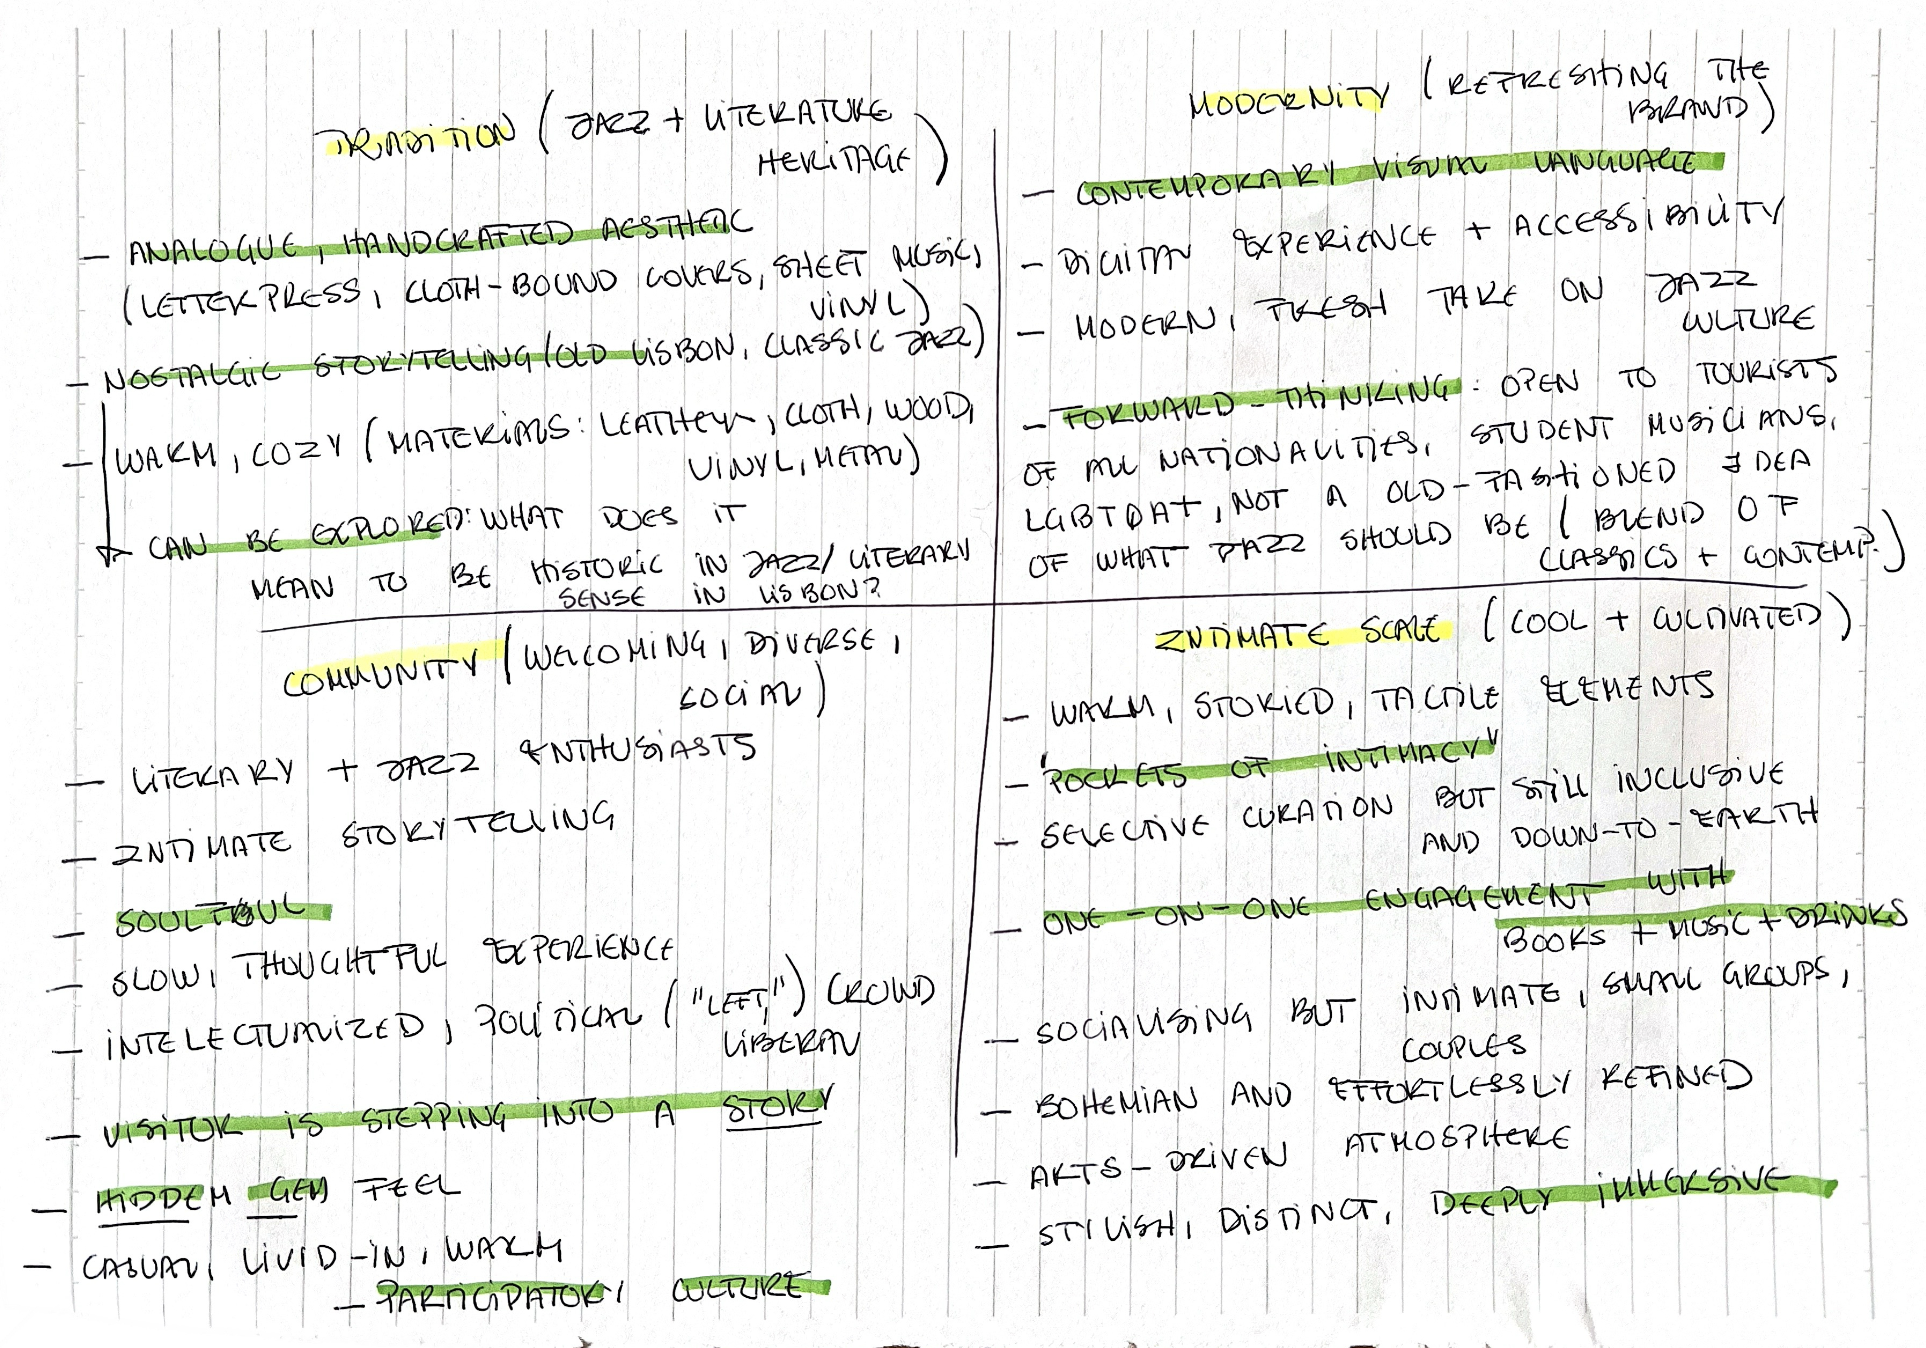 TRADITION (JAZZ + LITERATURE
HERITAGE)
- ANALOGUE, HANDCRAFTED AESTHETIC
(LETTERPRESS, CLOTH-BOUND COVERS, SHEET MUSIC,
VINYL)
- NOSTALGIC STORYTELLING (OLD LISBON, CLASSIC JAZZ)
- WARM, COZY (MATERIALS: LEATHER, CLOTH, WOOD,
VINYL, METAL)
CAN BE EXPLORED: WHAT DOES IT
MEAN TO BE HISTORIC IN JAZZ/LITERARY
SENSE IN LISBON?
MODERNITY (REFRESHING THE
BRAND)
- CONTEMPORARY VISUAL LANGUAGE
- DIGITAL EXPERIENCE + ACCESSIBILITY
- MODERN, FRESH TAKE ON JAZZ
CULTURE
- FORWARD-THINKING: OPEN TO TOURISTS
OF ALL NATIONALITIES, STUDENT MUSICIANS,
LGBTQAT, NOT A OLD-FASHIONED IDEA
OF WHAT JAZZ SHOULD BE (BLEND OF
CLASSICS + CONTEMP.)
COMMUNITY (WELCOMING, DIVERSE,
SOCIAL)
- LITERARY + JAZZ ENTHUSIASTS
- INTIMATE STORYTELLING
- SOULFOUL
- SLOW, THOUGHTFUL EXPERIENCE
- INTELECTUALIZED, POLITICAL ("LEFT,") CROWD
LIBERAL
- VISITOR IS STEPPING INTO A STORY
- HIDDEN GEM FEEL
- CASUAL, LIVID-IN, WARM
- PARTICIPATORY CULTURE
INTIMATE SCALE (COOL + CULTIVATED)
- WARM, STORIED, TACTILE ELEMENTS
- "POCKETS OF INTIMACY"
- SELECTIVE CURATION BUT STILL INCLUSIVE
AND DOWN-TO-EARTH
- ONE-ON-ONE ENGAGEMENT WITH
BOOKS + MUSIC + DRINKS
- SOCIALISING BUT INTIMATE, SMALL GROUPS,
COUPLES
- BOHEMIAN AND EFFORTLESSLY REFINED
- ARTS-DRIVEN ATMOSPHERE
- STYLISH, DISTINCT, DEEPLY IMMERSIVE